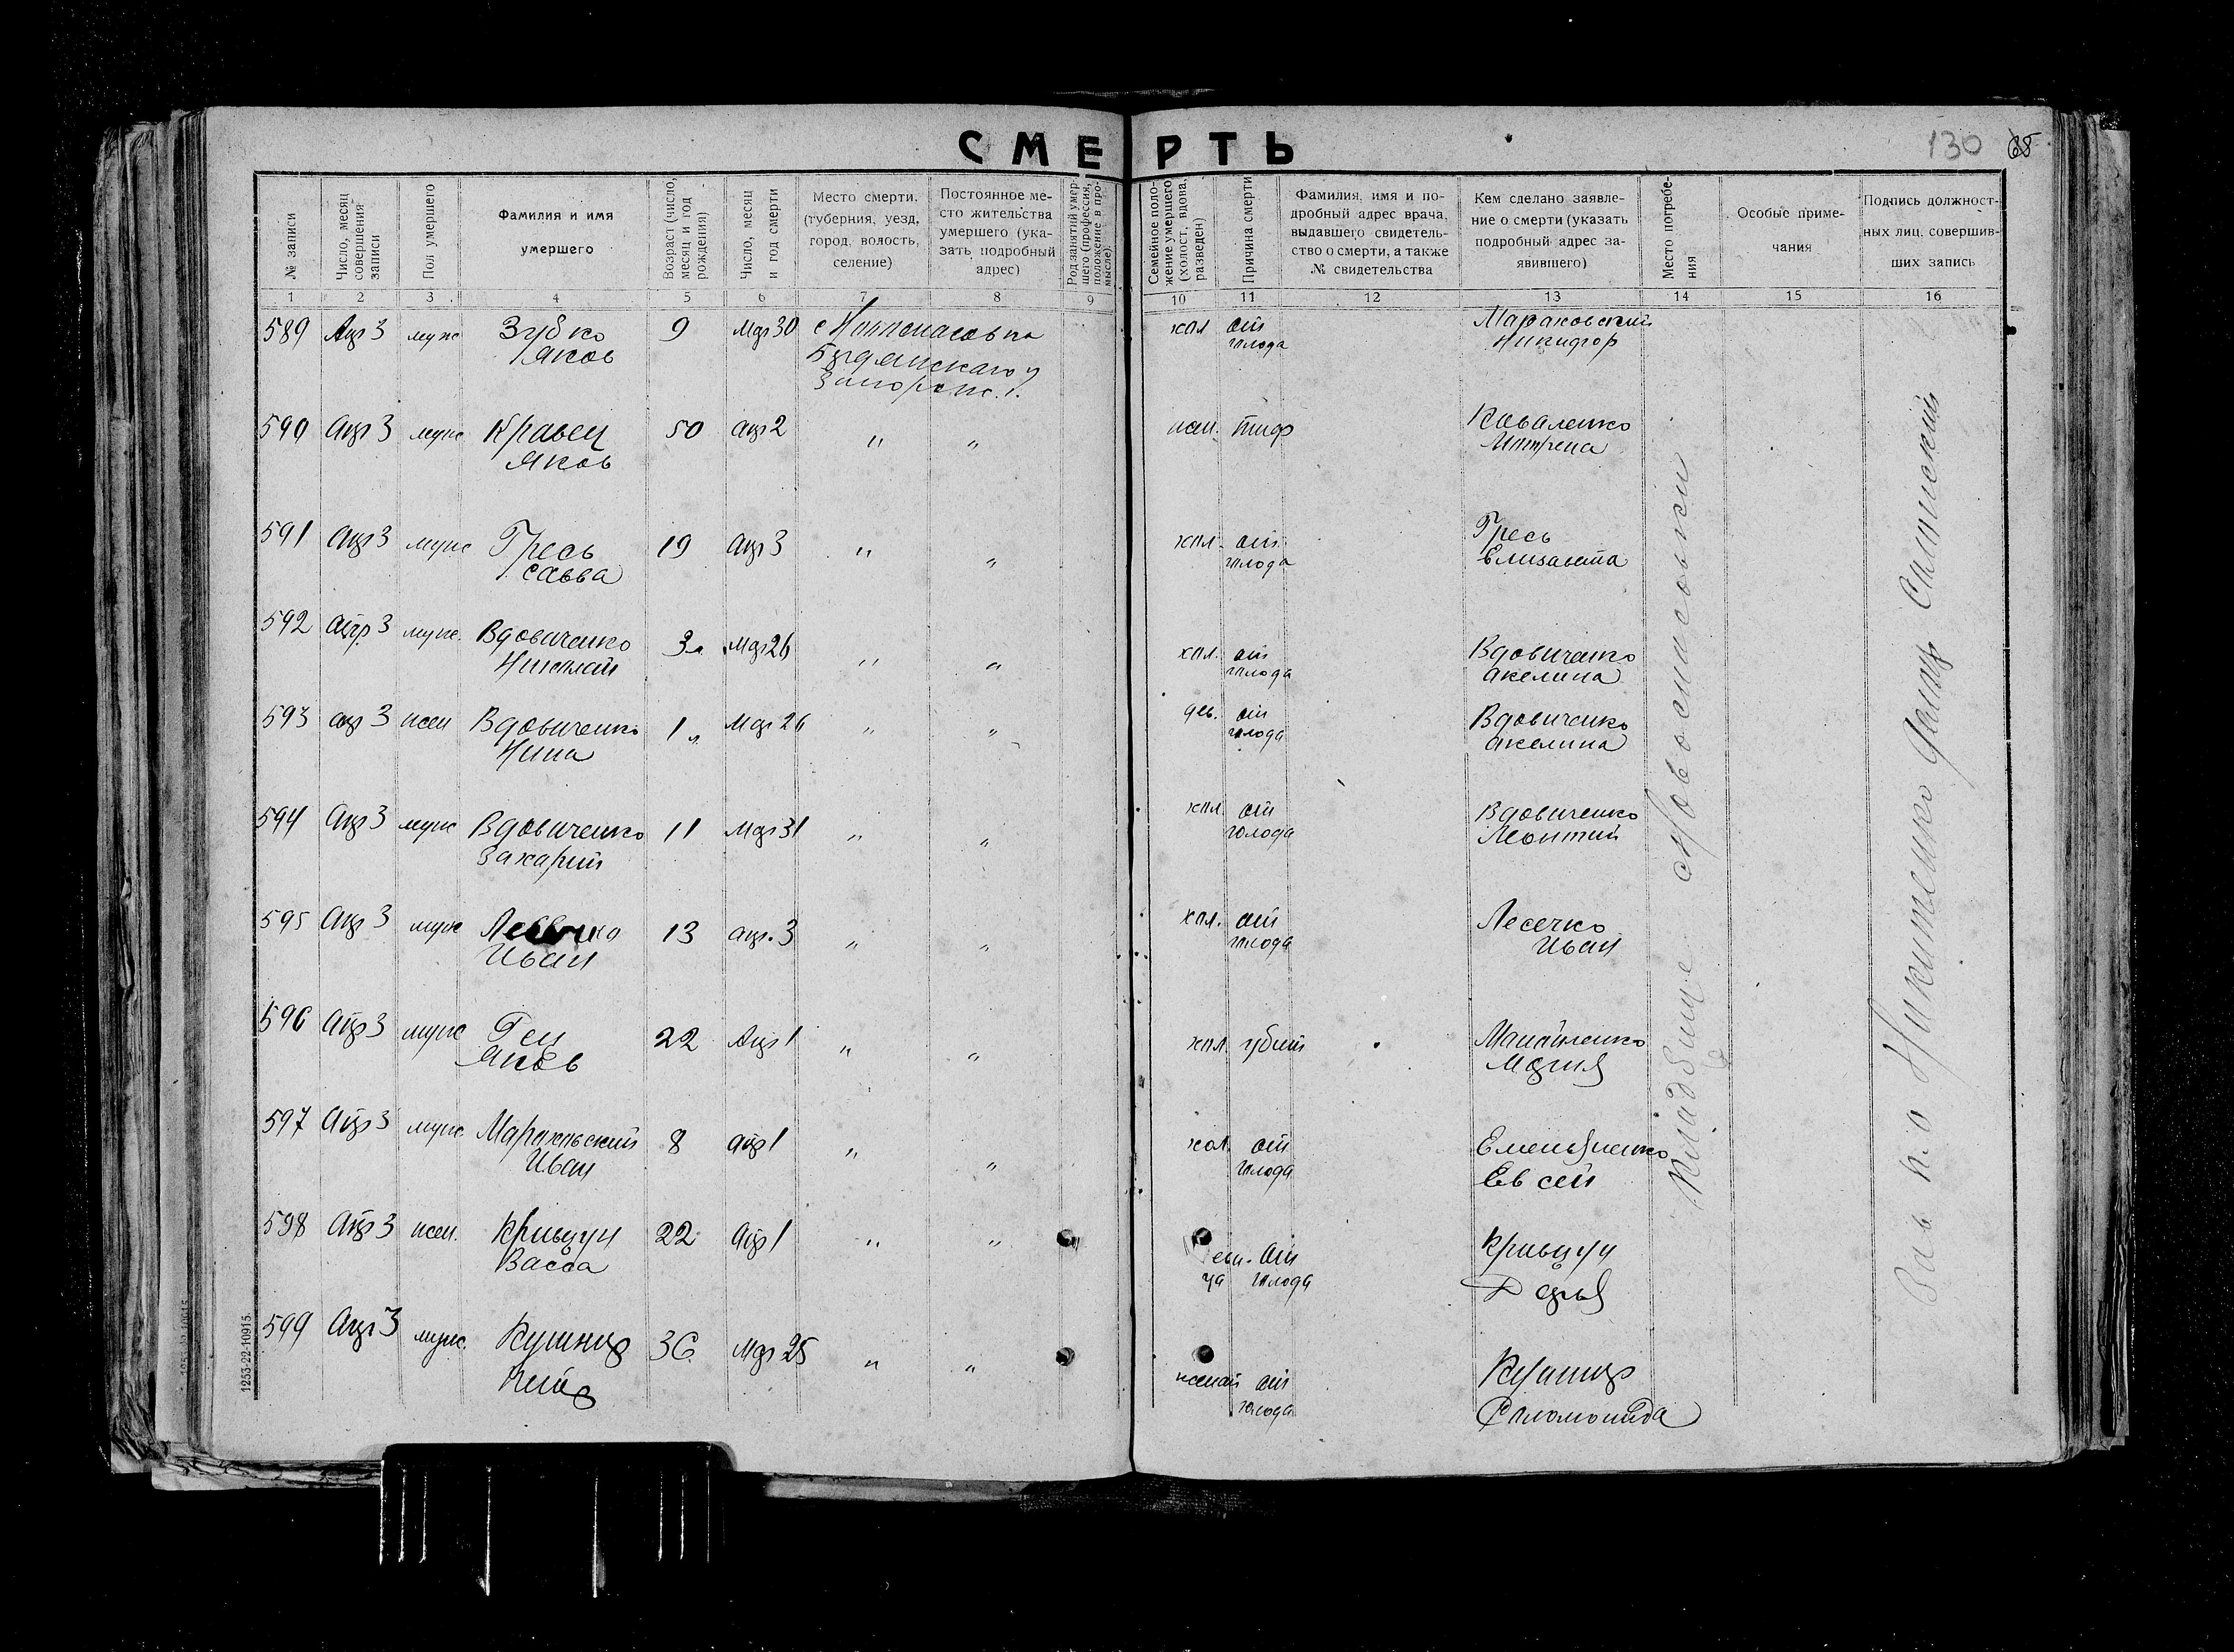 СМЕРТЬ
130 65
№ записи
Число, месяц совершения записи
Пол умершего
Фамилия и имя умершего
Возраст (число, месяц и год рождения)
Число, месяц и год смерти
Место смерти. (губерния, уезд, город, волость, селение)
Постоянное место жительства умершего (указать подробный адрес)
Род занятий умершего (профессия, положение в промысле).
Семейное положение умершего (холост, вдова, разведен)
Причина смерти
Фамилия, имя и подробный адрес врача, выдавшего свидетельство о смерти, а также № свидетельства
Кем сделано заявление о смерти (указать подробный адрес заявившего)
Место погребения
Особые примечания
Подпись должностных лиц, совершивших запись
1 2 3 4 5 6 7 8 9 10 11 12 13 14 15 16
589 Апр 3 муж Зубко Яков 9 Мар 30 хол от голода Мараховский Никифор
590 Апр 3 муж Кравец Яков 50 апр 2 " " жен. тиф Коваленко
591 Апр 3 муж Гресь Савва 19 Апр 3 " " хол. от голода Гресь Елизавета
592 Апр. 3 муж. Вдовиченко Николай 3 л. Мар 26 " " хол. от голода Вдовиченко Акелина
593 апр 3 жен Вдовиченко Нина 1 л. Мар 26 " " дев. от голода Вдовиченко Акелина
594 Апр 3 муж Вдовиченко Захарий 11 Мар 31 " " хол от голода Вдовиченко Леонтий
595 Апр 3 муж Иван 13 апр. 3 " " хол. от голода Лесечко Иван
596 Апр 3 муж Ген Яков 22 Апр 1 " " хол. убит Мария
597 Апр 3 муж. Мараховский Иван 8 апр 1 " " хол. от голода Емельяненко Евсей
598 Апр 3 жен. Кривцун Васса 22 Апр 1 " " от голода Кривцун Дарья
599 Апр 3 муж. Кушнир 36 Мар 25 " " женат от голода Кушнир Соломонида
Кладбище с Новоспасовки
Зав п.о Никитенко
1253-22-10915.